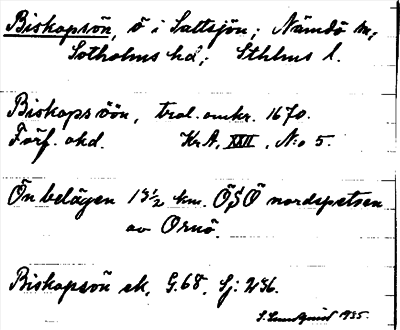 Biskopsön, ö i Saltsjön, Nämdö sn,
Sotholms hd, Sthlms l.
Biskopsöön, trol. omkr. 1670.
Förf. okd. Kr.A, XXII, N:o 5.
Ön belägen 13½ km. ÖSÖ nordspetsen
av Ornö.
Biskopsön ek. G.68, Sj: 236.
S. Lundquist 1935.